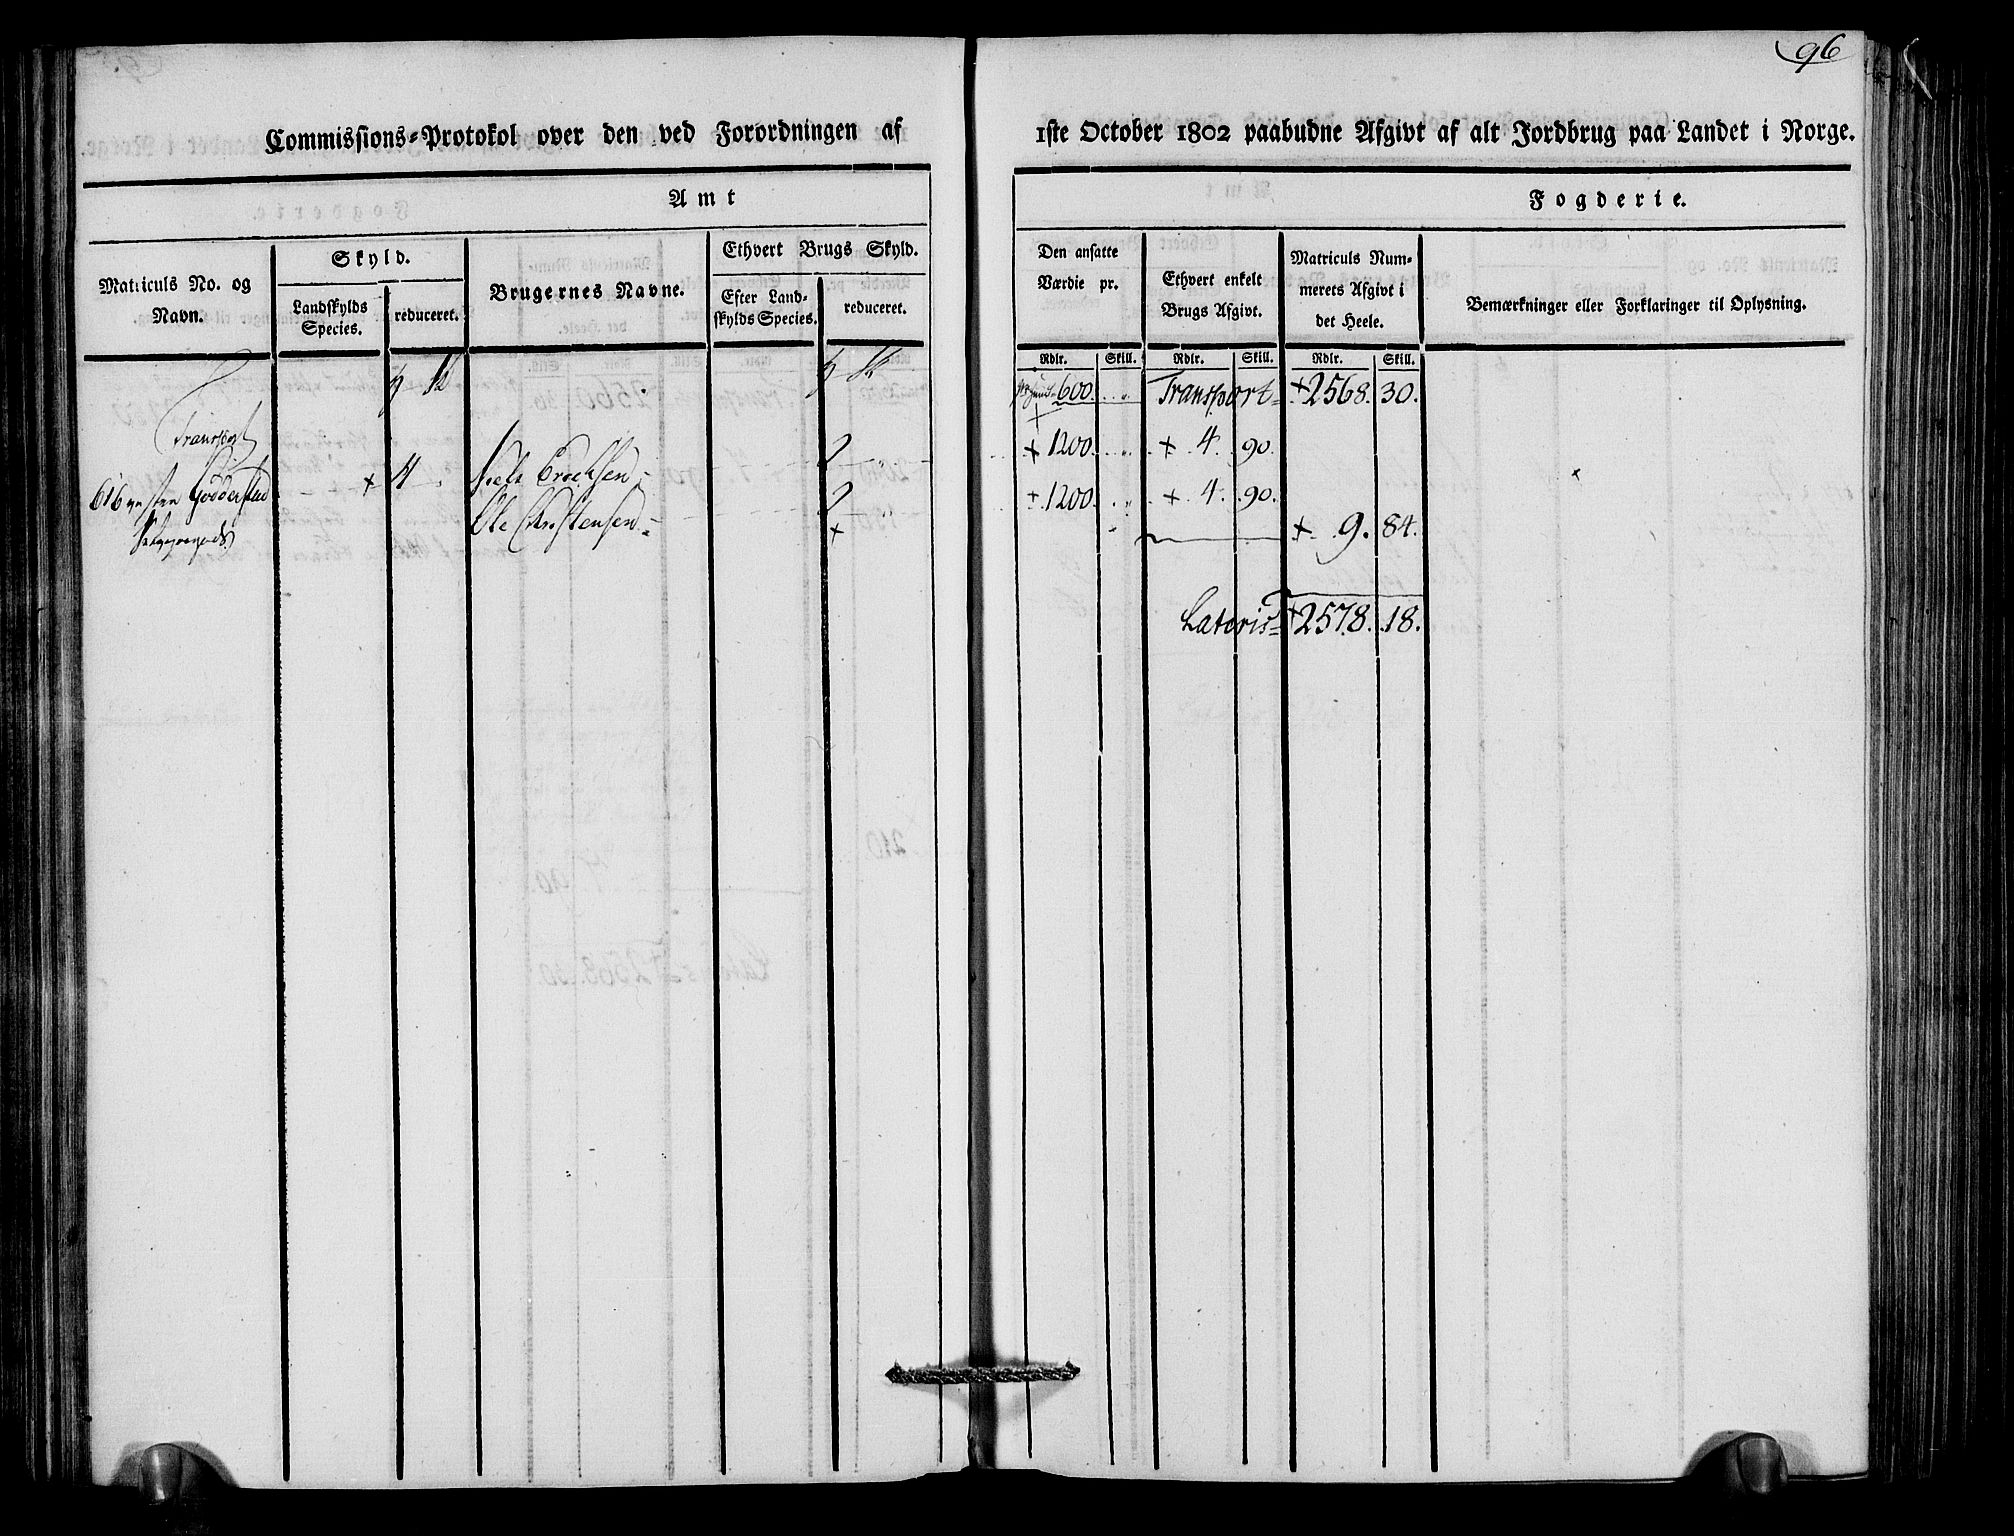 96
Commissions-Protokol over den ved Forordningen af 1ste October 1802 paabudne Afgivt af alt Jordbrug paa Landet i Norge.
Amt Fogderie.
Matriculs No. og Navn.
Skyld.
Landskylds Species.
reduceret.
Brugernes Navne.
Ethvert Brugs Skyld.
Efter Landskylds Species.
reduceret.
Den ansatte Værdie pr.
Ethvert enkelt Brugs Afgivt.
Matriculs Nummerets Afgivt i det Heele.
Bemærkninger eller Forklaringer til Oplysning.
Rdlr. Skill. Rdlr. Skill. Rdlr. Skill.
600 Transport = + 2568. 30.
Transport
2 + 1200 + 4. 90.
616 + 4. Niels Erichsen =
2 + 1200 + 4. 90.
Ole Christensen =
+ + 9. 84.
Lateris = + 2578. 18.